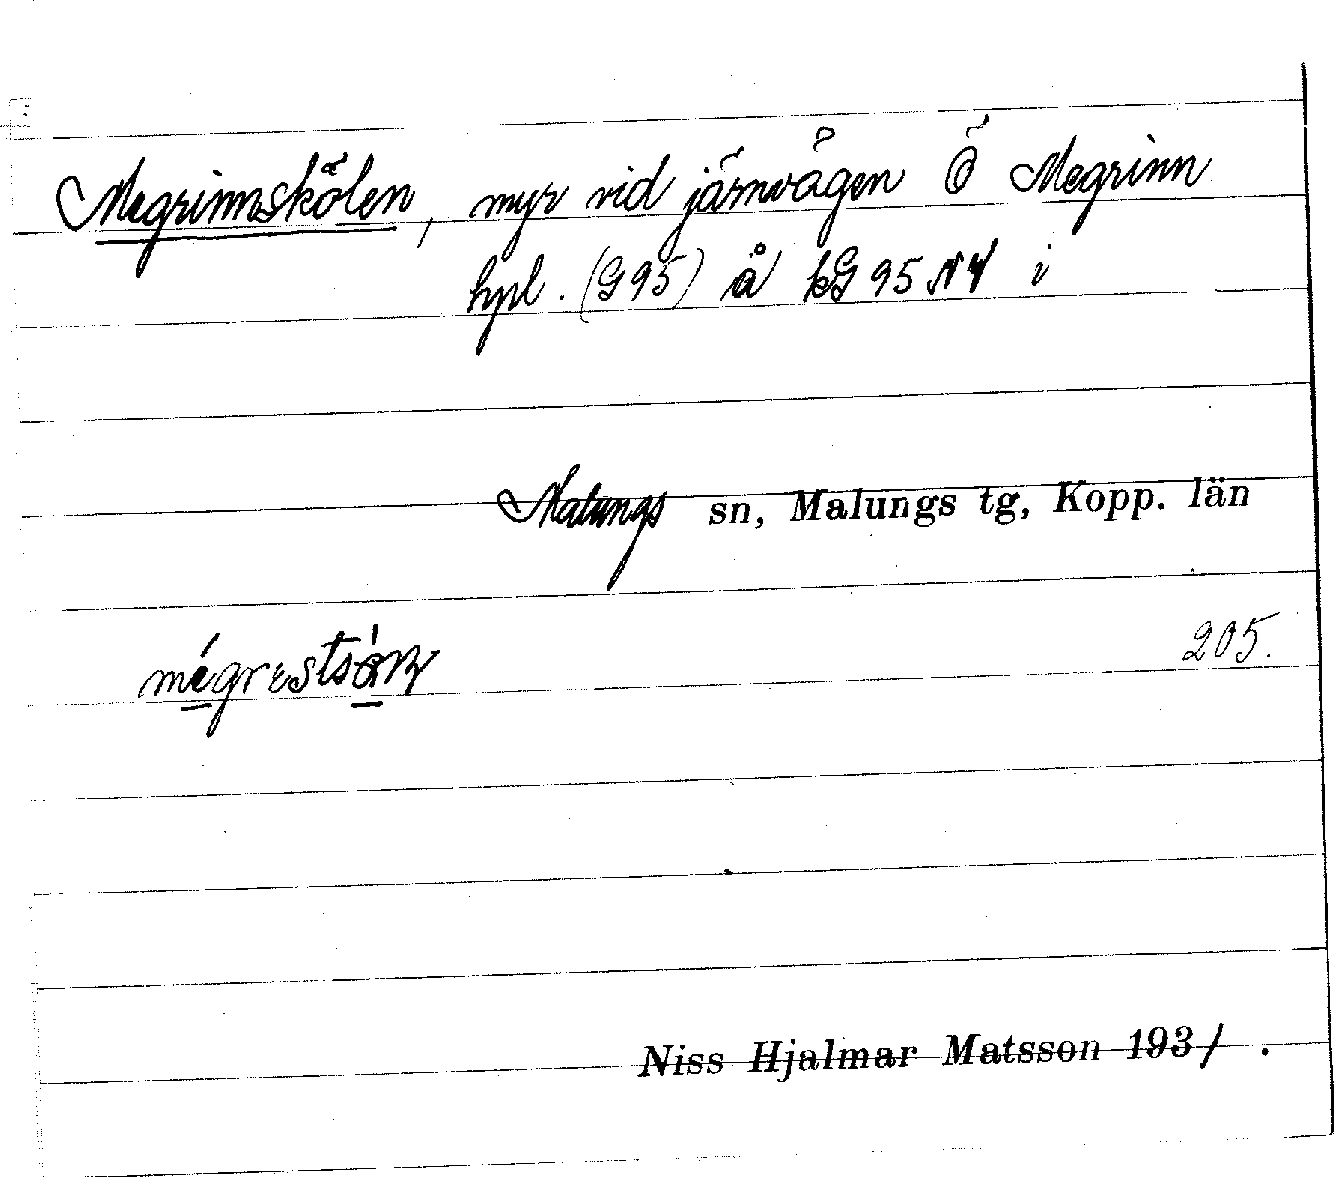 Megrinnskölen, myr vid järnvägen Ö Megrinn
hpl. (G95) å kG 95 NV i
Malungs sn, Malungs tg, Kopp. län
205.
Niss Hjalmar Matsson 1931.